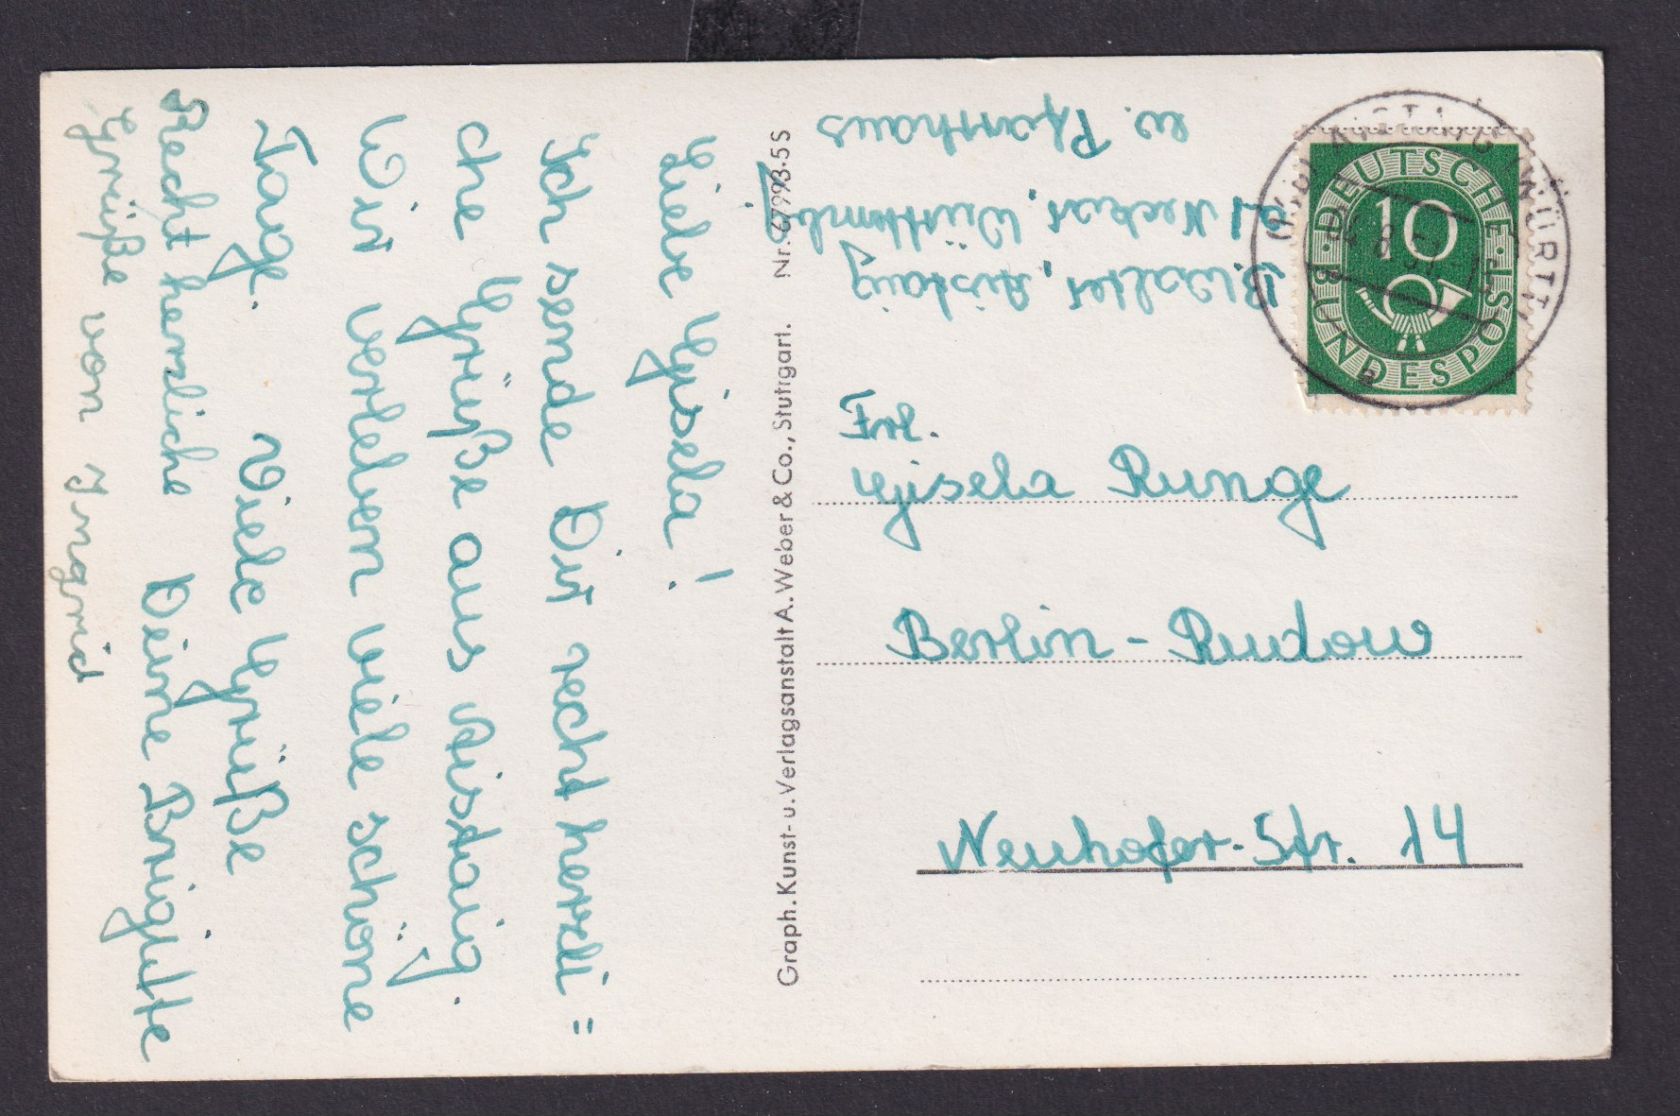 Liebe Gisela!
Ich sende Dir recht herzli=
che Grüße aus Aistaig.
Wir verleben viele schöne
Tage. Viele Grüße
Deine Brigitte
Recht herzliche
Grüße von Ingrid
Nr. 67993-5S
Graph. Kunst- u. Verlagsanstalt A. Weber & Co., Stuttgart.
B. Walter, Aistaig
a/ Neckar, Württembg.
ev. Pfarrhaus
DEUTSCHE
BUNDESPOST
10
AISTAIG (WÜRTT)
Frl.
Gisela Runge
Berlin-Rudow
Neuhofer-Str. 14